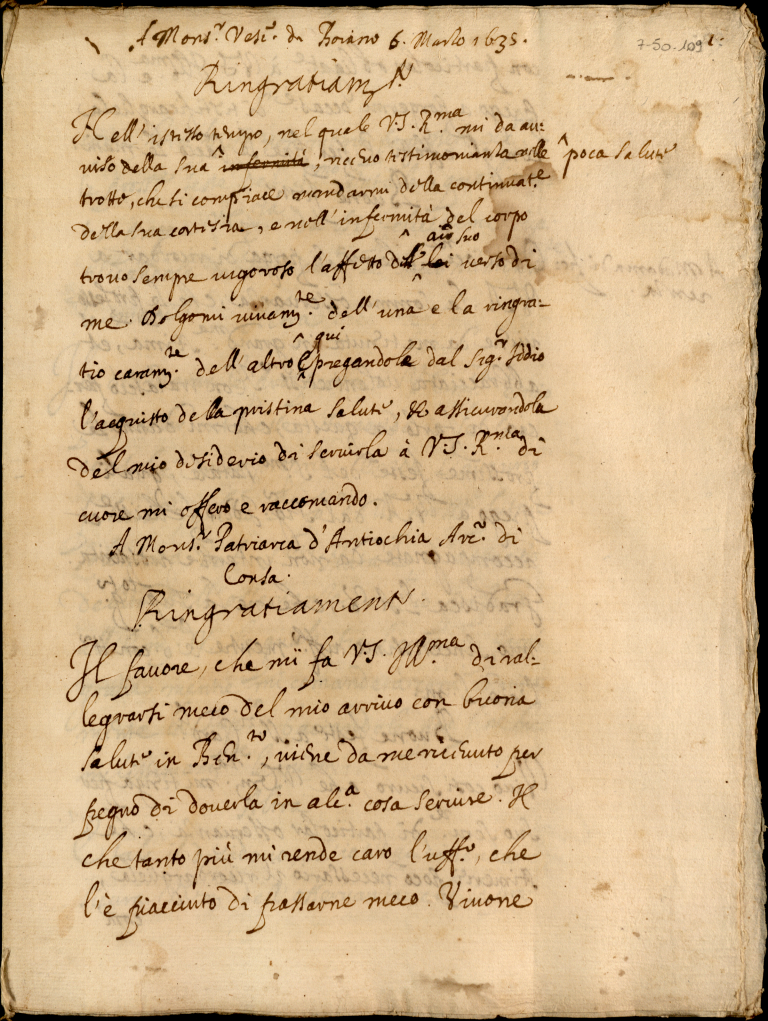 A Mons.r Vesc.o di Boiano 6. Marzo 1635.
7-50-109
Ringratiam.to
Nell'istesso tempo, nel quale V.S. R.ma mi da au-
uiso della sua ^ infermità, riceuo testimonianza molte ^ poca salute
trotte, che si compiace mandarmi della continuat.e
della sua cortesia, e nell'infermità del corpo
aio suo
trouo sempre uigoroso l'affetto di lei uerso di
me. Dolgomi uiuam.te dell'una e la ringra-
qui
tio caram.te dell'altro e pregandole dal Sig.r Iddio
l'acquisto della pristina salute, et assicurandola
del mio desiderio di seruirla à V.S. R.ma di
cuore mi offero e raccomando.
A Mons.r Patriarca d'Antiochia Arc.o di
Consa.
Ringratiamento.
Il fauore, che mi fa V.S. Ill.ma di ral-
legrarsi meco del mio arriuo con buona
salute in Ben.to, uiene da me riceuuto per
pegno di douerla in alc.a cosa seruire. Il
che tanto più mi rende caro l'uff.o, che
l'è piacciuto di passarne meco. Viuone